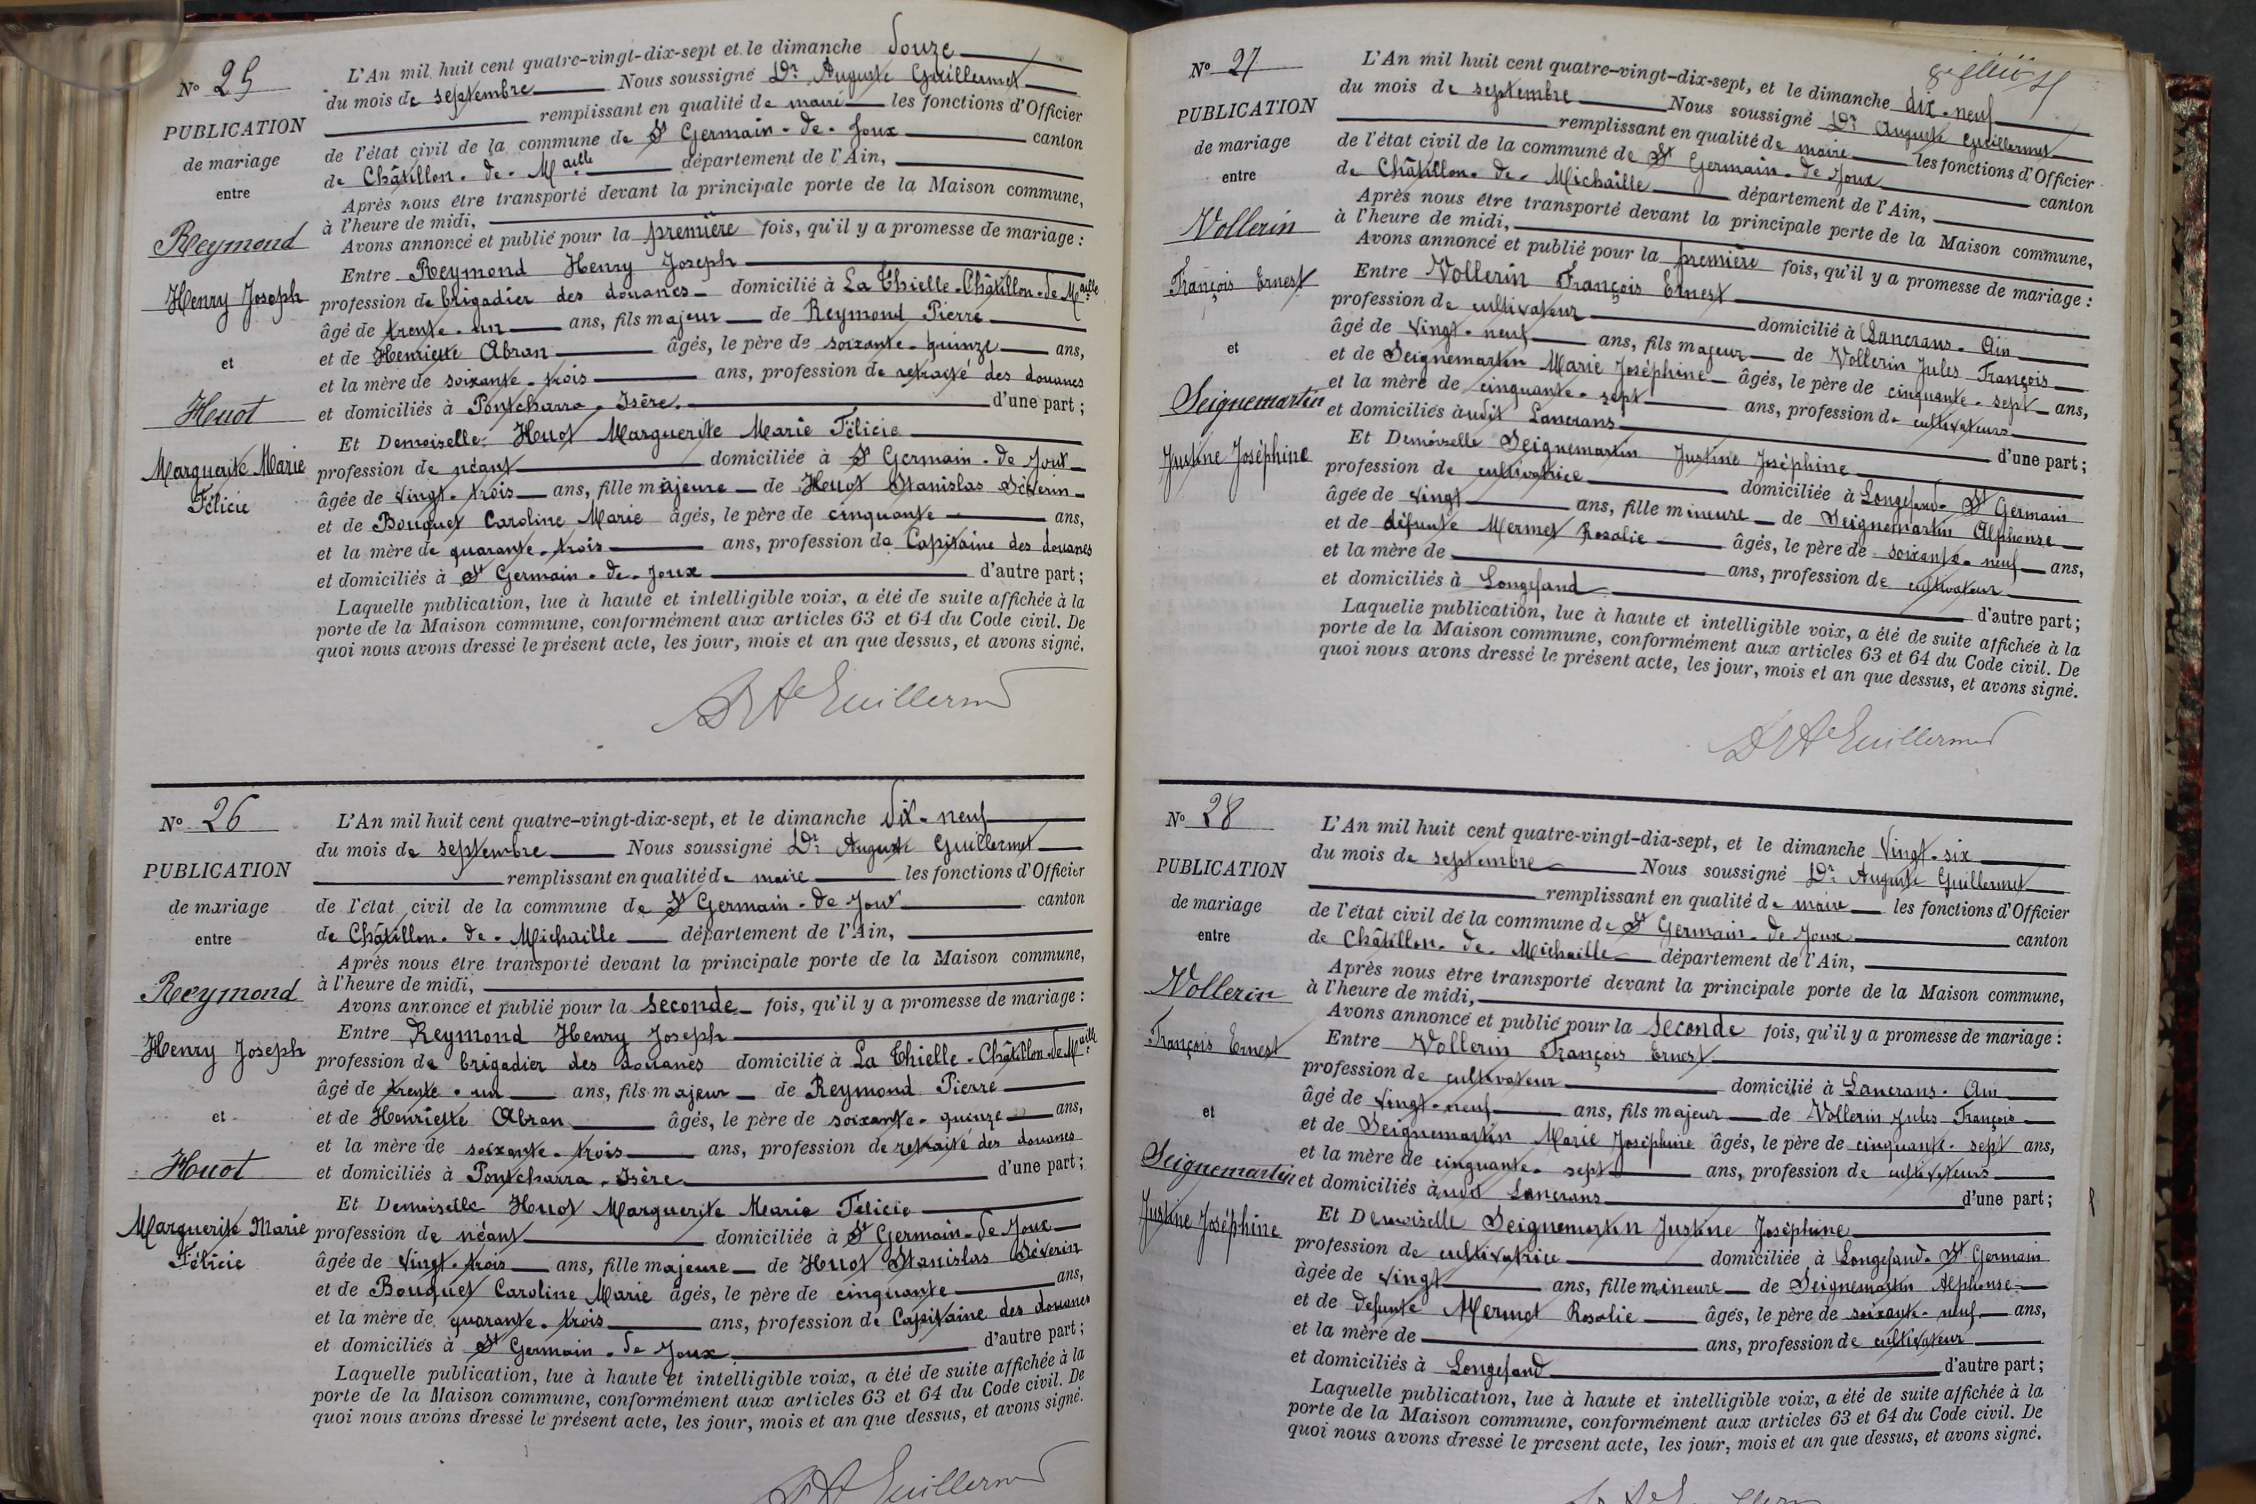 No 25
PUBLICATION
de mariage
entre
Reymond
Henry Joseph
et
Huot
Marguerite Marie
Félicie
L'An mil huit cent quatre-vingt-dix-sept et le dimanche Douze
du mois de septembre Nous soussigné Dr Auguste Guillermet
remplissant en qualité de maire les fonctions d'Officier
de l'état civil de la commune de St Germain-de-Joux canton
de Châtillon-de-Maille département de l'Ain,
Après nous être transporté devant la principale porte de la Maison commune,
à l'heure de midi,
Avons annoncé et publié pour la première fois, qu'il y a promesse de mariage :
Entre Reymond Henry Joseph
profession de brigadier des douanes domicilié à La Thielle-Châtillon-de-Maille
âgé de trente-un ans, fils majeur de Reymond Pierre
et de Henriette Abran âgés, le père de soixante-quinze ans,
et la mère de soixante-trois ans, profession de retraité des douanes
et domiciliés à Pontcharra, Isère. d'une part ;
Et Demoiselle Huot Marguerite Marie Félicie
profession de néant domiciliée à St Germain-de-Joux
âgée de vingt-trois ans, fille majeure de Huot Stanislas Séverin
et de Bouquet Caroline Marie âgés, le père de cinquante ans,
et la mère de quarante-trois ans, profession de Capitaine des douanes
et domiciliés à St Germain-de-Joux d'autre part ;
Laquelle publication, lue à haute et intelligible voix, a été de suite affichée à la
porte de la Maison commune, conformément aux articles 63 et 64 du Code civil. De
quoi nous avons dressé le présent acte, les jour, mois et an que dessus, et avons signé.
Dr Ate Guillermet
No 26
PUBLICATION
de mariage
entre
Reymond
Henry Joseph
et
Huot
Marguerite Marie
Félicie
L'An mil huit cent quatre-vingt-dix-sept, et le dimanche Dix-neuf
du mois de septembre Nous soussigné Dr Auguste Guillermet
remplissant en qualité de maire les fonctions d'Officier
de l'état civil de la commune de St Germain-de-Joux canton
de Châtillon-de-Michaille département de l'Ain,
Après nous être transporté devant la principale porte de la Maison commune,
à l'heure de midi,
Avons annoncé et publié pour la seconde fois, qu'il y a promesse de mariage :
Entre Reymond Henry Joseph
profession de brigadier des douanes domicilié à La Thielle-Châtillon-de-Maille
âgé de trente-un ans, fils majeur de Reymond Pierre
et de Henriette Abran âgés, le père de soixante-quinze ans,
et la mère de soixante-trois ans, profession de retraité des douanes
et domiciliés à Pontcharra, Isère d'une part ;
Et Demoiselle Huot Marguerite Marie Félicie
profession de néant domiciliée à St Germain-de-Joux
âgée de vingt-trois ans, fille majeure de Huot Stanislas Séverin
et de Bouquet Caroline Marie âgés, le père de cinquante ans,
et la mère de quarante-trois ans, profession de Capitaine des douanes
et domiciliés à St Germain-de-Joux d'autre part ;
Laquelle publication, lue à haute et intelligible voix, a été de suite affichée à la
porte de la Maison commune, conformément aux articles 63 et 64 du Code civil. De
quoi nous avons dressé le présent acte, les jour, mois et an que dessus, et avons signé.
Dr Ate Guillermet
No 27
PUBLICATION
de mariage
entre
Vollerin
François Ernest
et
Seignemartin
Justine Joséphine
L'An mil huit cent quatre-vingt-dix-sept, et le dimanche dix-neuf
du mois de septembre Nous soussigné Dr Auguste Guillermet
remplissant en qualité de maire les fonctions d'Officier
de l'état civil de la commune de St Germain-de-Joux canton
de Châtillon-de-Michaille département de l'Ain,
Après nous être transporté devant la principale porte de la Maison commune,
à l'heure de midi,
Avons annoncé et publié pour la première fois, qu'il y a promesse de mariage :
Entre Vollerin François Ernest
profession de cultivateur domicilié à Lancrans-Ain
âgé de vingt-neuf ans, fils majeur de Vollerin Jules François
et de Seignemartin Marie Joséphine âgés, le père de cinquante-sept ans,
et la mère de cinquante-sept ans, profession de cultivateurs
et domiciliés audit Lancrans d'une part ;
Et Demoiselle Seignemartin Justine Joséphine
profession de cultivatrice domiciliée à Longefand-St Germain
âgée de vingt ans, fille mineure de Seignemartin Alphonse
et de défunte Mermet Rosalie âgés, le père de soixante-neuf ans,
et la mère de ans, profession de cultivateur
et domiciliés à Longefand d'autre part ;
Laquelle publication, lue à haute et intelligible voix, a été de suite affichée à la
porte de la Maison commune, conformément aux articles 63 et 64 du Code civil. De
quoi nous avons dressé le présent acte, les jour, mois et an que dessus, et avons signé.
Dr Ate Guillermet
No 28
PUBLICATION
de mariage
entre
Vollerin
François Ernest
et
Seignemartin
Justine Joséphine
L'An mil huit cent quatre-vingt-dix-sept, et le dimanche vingt-six
du mois de septembre Nous soussigné Dr Auguste Guillermet
remplissant en qualité de maire les fonctions d'Officier
de l'état civil de la commune de St Germain-de-Joux canton
de Châtillon-de-Michaille département de l'Ain,
Après nous être transporté devant la principale porte de la Maison commune,
à l'heure de midi,
Avons annoncé et publié pour la seconde fois, qu'il y a promesse de mariage :
Entre Vollerin François Ernest
profession de cultivateur domicilié à Lancrans-Ain
âgé de vingt-neuf ans, fils majeur de Vollerin Jules François
et de Seignemartin Marie Joséphine âgés, le père de cinquante-sept ans,
et la mère de cinquante-sept ans, profession de cultivateurs
et domiciliés audit Lancrans d'une part ;
Et Demoiselle Seignemartin Justine Joséphine
profession de cultivatrice domiciliée à Longefand-St Germain
âgée de vingt ans, fille mineure de Seignemartin Alphonse
et de defunte Mermet Rosalie âgés, le père de soixante-neuf ans,
et la mère de ans, profession de cultivateur
et domiciliés à Longefand d'autre part ;
Laquelle publication, lue à haute et intelligible voix, a été de suite affichée à la
porte de la Maison commune, conformément aux articles 63 et 64 du Code civil. De
quoi nous avons dressé le présent acte, les jour, mois et an que dessus, et avons signé.